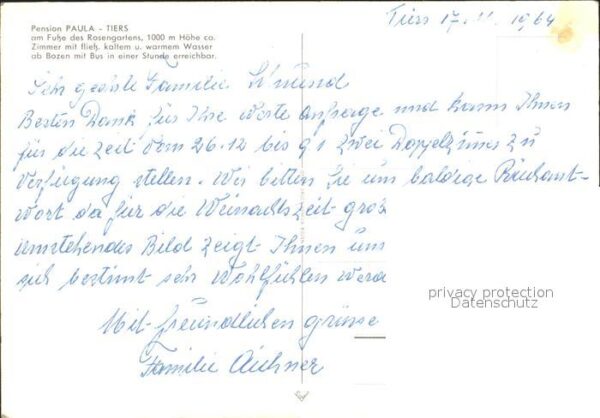 Pension PAULA - TIERS
am Fuße des Rosengartens, 1000 m Höhe ca.
Zimmer mit fließ. kaltem u. warmem Wasser
ab Bozen mit Bus in einer Stunde erreichbar.
Tiers 17.11.1964
Sehr geehrte Familie
Besten Dank für Ihre werte Anfrage und kann Ihnen
für die Zeit vom 26.12 bis 9 1 zwei Doppelzimer zu
Verfiegung stellen. Wir bitten Sie um baldige Rückant-
wort da für die Weinachtszeit gros
umstehendes Bild zeigt Ihnen uns
sich bestimt sehr Wohlfühlen werd
Mit freundlichen grüsse
Familie Aichner
privacy protection
Datenschutz